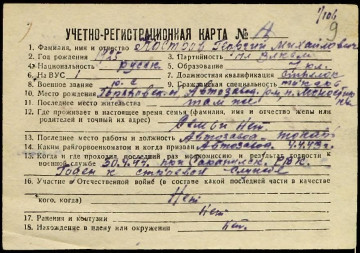 1/106
9
УЧЕТНО-РЕГИСТРАЦИОННАЯ КАРТА № 4
1. Фамилия, имя и отчество Костров Георгий Михайлович
2. Год рождения 1925 3. Партийность чл ВЛКСМ
4. Национальность русск 5. Образование 7 кл.
6. № ВУС 1 7. Должностная квалификация стрелок
8. Военное звание
9. Место рождения Горьковская
10. Последнее место жительства там же
11. Где проживает в настоящее время семья (фамилия, имя и отчество жены или родителей и точный их адрес)
Семьи нет
13. Последнее место работы и должность Автозавод токарь
14. Каким райгорвоенкоматом и когда призван Автозавод. 4.4.43 г.
15. Когда и где проходил последний раз медкомиссию и результат годности к военной службе 30.4.44. при РВК
Годен к строевой службе
16. Участие в Отечественной войне (в составе какой последней части в качестве кого, когда) Нет
17. Ранения и контузии Нет
18. Нахождение в плену или окружении Нет.